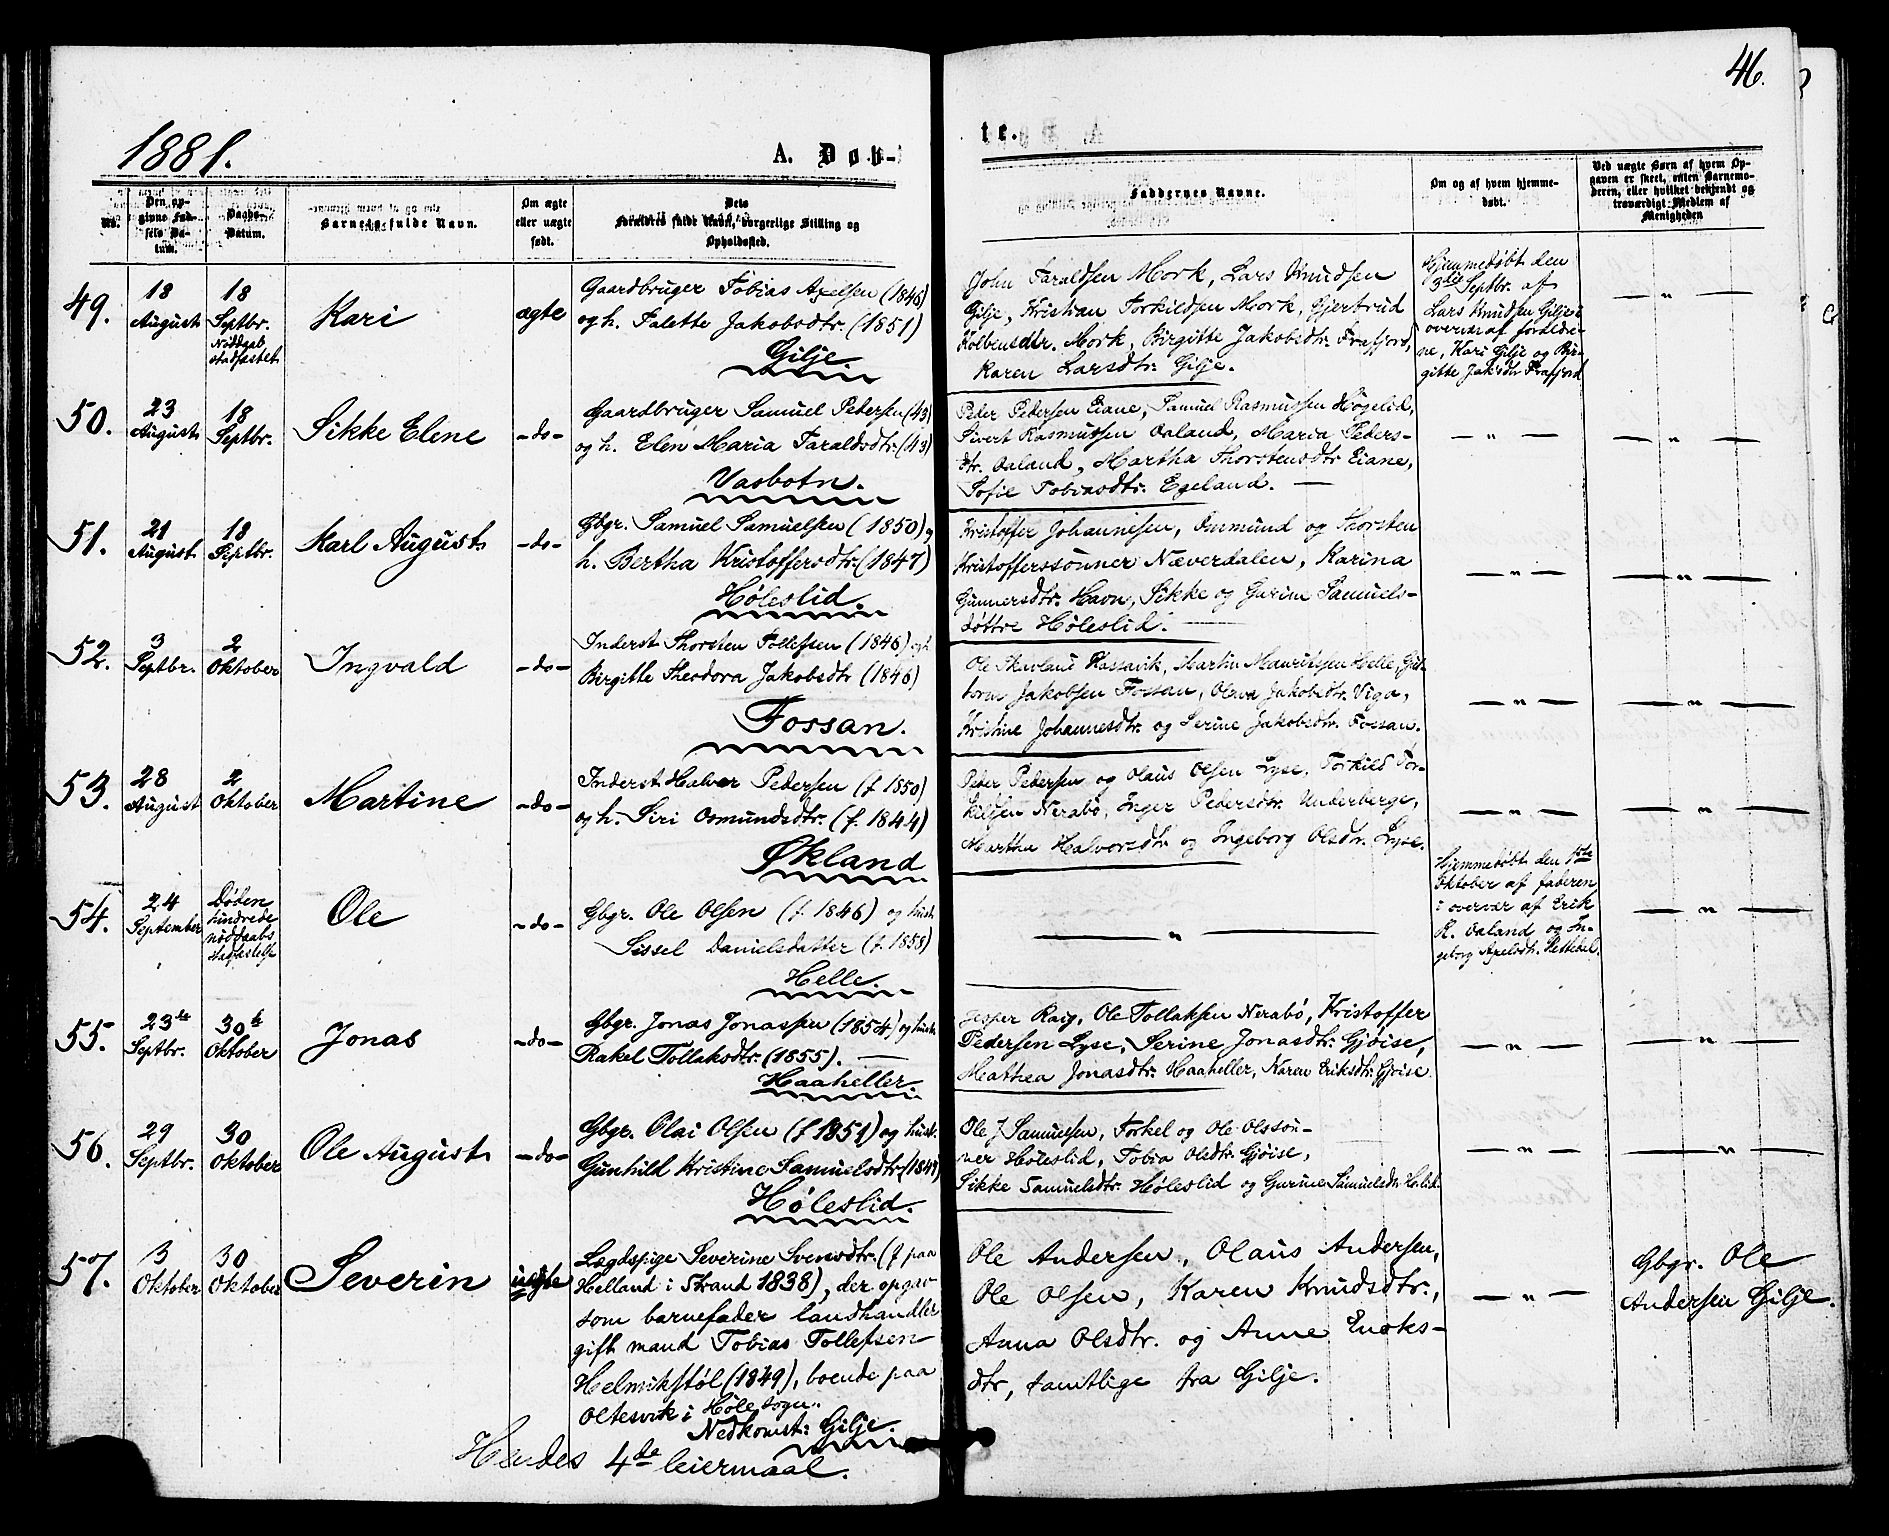 46.
1881.
A. Døb-
te.
No.
Den op-
givne Fød-
sels Da-
tum.
Daabs-
Datum.
Barnets fulde Navn.
Om ægte
eller uægte
født.
Dets
Forældres fulde Navn, borgerlige Stilling og
Opholdssted.
Faddernes Navne.
Om og af hvem hjemme-
døbt.
Ved uægte Børn af hvem Op-
gaven er skeet, enten Barnemo-
deren, eller hvilket bekjendt og
troværdigt Medlem af
Menigheden
49.
18
August
18
Septbr.
Nøddaab
stadfæstet.
Kari
ægte
Gaardbruger Tobias Axelsen (1846)
og h. Talette Jakobsdtr. (1851)
Gilje.
John Taraldsen Mork, Lars Knudsen
Gilje, Kristian Torkildsen Mork, Gjertrud
Kolbensdtr. Mork, Birgitte Jakobsdtr. Frafjord,
Karen Larsdtr. Gilje.
Hjemmedøbt den
3die Septbr. af
Lars Knudsen Gilje i
overvær af forældre-
ne, Kari Gilje og Bir-
gitte Jak.dtr Frafjord
— " —
50.
23
August
18
Septbr.
Sikke Elene
-do-
Gaardbruger Samuel Pedersen (43)
og h. Elen Maria Taraldsdtr. (43)
Vasbotn.
Peder Pedersen Eiane, Samuel Rasmussen Høgelid,
Sivert Rasmussen Oaland, Maria Peders-
dtr. Oaland, Martha Thorstensdtr Eiane,
Sofie Tobiasdtr. Egeland. —
— " —
— " —
51.
21
August
18
Septbr.
Karl August
-do-
Gbgr. Samuel Samuelsen (1850) og
h. Bertha Kristoffersdtr. (1847)
Høleslid.
Kristoffer Johannesen, Osmund og Thorsten
Kristofferssønner Næverdalen, Karina
Gunnersdtr. Havn, Sikke og Gurine Samuels-
døttre Høleslid. —
— " —
— " —
52.
3
Septbr.
2
Oktober
Ingvald
-do-
Inderst Thorsten Tollefsen (1846) og h.
Birgitte Theodora Jakobsdtr (1846)
Fossan.
Ole Skavland Hassavik, Martin Mauritsen Helle, Gut-
torm Jakobsen Fossan, Olava Jakobsdtr. Viga,
Kristine Johannesdtr. og Serine Jakobsdtr. Fossan.
— " —
— " —
53.
28
August
2
Oktober
Martine
-do-
Inderst Halvor Pedersen (f 1850)
og h. Siri Osmundsdtr. (f. 1844)
Økland
Peder Pedersen og Olaus Olsen Lyse, Torkild Tor-
kilsen Nerabø, Inger Pedersdtr. Underberge,
Martha Halvorsdtr. og Ingeborg Olsdtr. Lyse.
— " —
— " —
54.
24
September
Døden
hindrede
nøddaabs
stadfæstelse
Ole
-do-
Gbgr. Ole Olsen (f. 1846) og hust.
Sissel Danielsdatter (f. 1858)
Helle.
— " —
Hjemmedøbt den 1ste
Oktober af faderen
i overvær af Erik
R. Oaland og In-
geborg Axelsdtr.
— " —
55.
23de
Septbr.
30te
Oktober
Jonas
-do-
Gbgr. Jonas Jonassen (1854) og hustr.
Rakel Tollaksdtr. (1855). —
Haaheller.
Jesper Raig, Ole Tollaksen Nerabø, Kristoffer
Pedersen Lyse, Serine Jonasdtr. Gjøise,
Mathea Jonasdtr. Haaheller, Karen Eriksdtr. Gjøise.
— " —
— " —
56.
29
Septbr.
30
Oktober
Ole August
-do-
Gbgr. Olai Olsen (f 1851) og hustr.
Gunhild Kristine Samuelsdtr.
Høleslid.
Ole J Samuelsen, Torkel og Ole Olssøn-
ner Høleslid, Tobia Olsdtr. Gjøise,
Sikke Samuelsdtr. Høleslid og Gurine Samuelsdtr
— " —
— " —
57.
3
Oktober
30
Oktober
Severin
uægte
Lægdspige Severine Svensdtr. (f paa
Helland i Strand 1838), der opgav
som barnefader landhandler
gift mand Tobias Tollefsen
Helmikstøl (1849), boende paa
Oltesvik i Høle sogn.
Nedkomst: Gilje.
Ole Andersen, Olaus Andersen,
Ole Olsen, Karen Knudsdtr.,
Anna Olsdtr. og Anne Enoks-
dtr, samtlige fra Gilje.
— " —
Gbgr. Ole
Andersen Gilje.
Hendes 4de leiermaal.